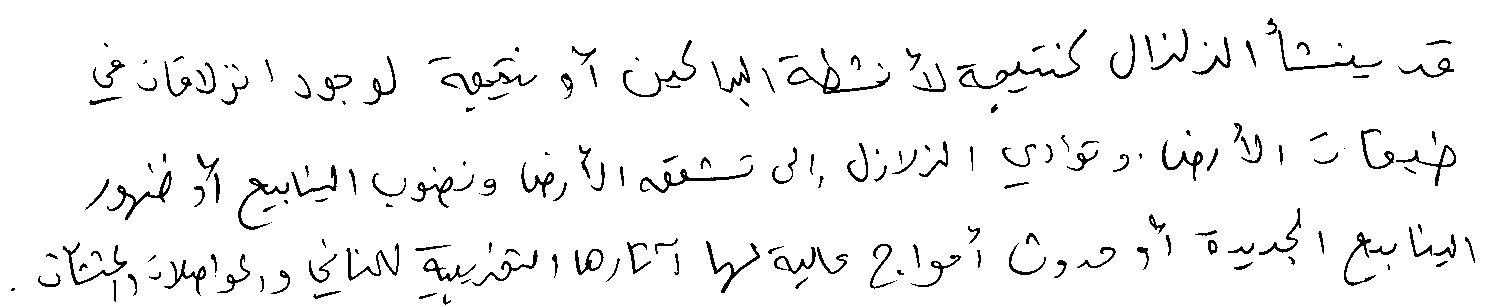 قد ينشأ الزلزال كنتيجة لأنشطة البراكين أو نتيجة لوجود انزلاقات في
طبقات الأرض. وتؤدي الزلازل إلى تشقق الأرض ونضوب الينابيع أو ظهور
الينابيع الجديدة أو حدوث أمواج عالية لها آثارها التخريبية للمباني والمواصلات والمنشآت.